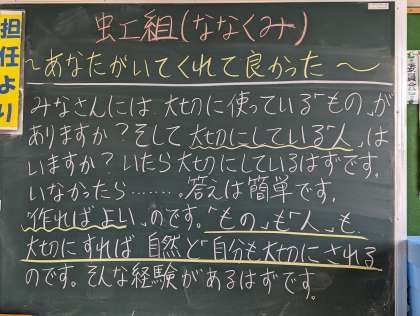 担任より
虫工組(ななくみ)
～あなたがいてくれて良かった～
みなさんには、大切に使っている「もの」が
ありますか?そして大切にしている「人」は
いますか?いたら大切にしているはずです。
いなかったら………。答えは簡単です。
「作ればよい」のです。「もの」も「人」も
大切にすれば自然と「自分も大切にされる
のです。そんな経験があるはずです。
委員会